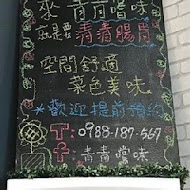 來青青嚐味
就是要青青腸胃
空間舒適
菜色美味。
*歡迎提前預約
丁子
0988-187-567
青青嚐味